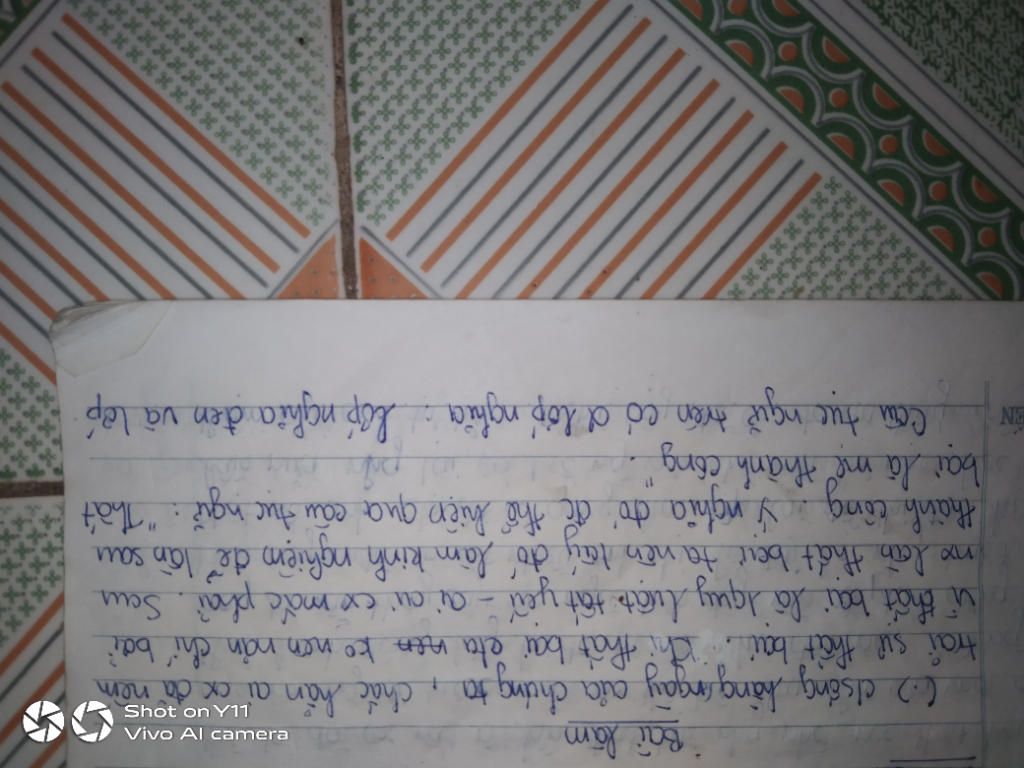 Bài làm
(.) c/sống hàng ngày của chúng ta, chắc hẳn ai cx đã nếm
trải sự thất bại. Khi thất bại cta ko nên nản chí bởi
vì thất bại là 1 quy luật tất yếu - ai ai cx mắc phải. Sau
mỗi lần thất bại ta nên lấy đó làm kinh nghiệm để lần sau
thành công. Ý nghĩa đó đc thể hiện qua câu tục ngữ: "Thất
bại là mẹ thành công".
Câu tục ngữ trên có 2 lớp nghĩa: lớp nghĩa đen và lớp
Shot on Y11
Vivo AI camera